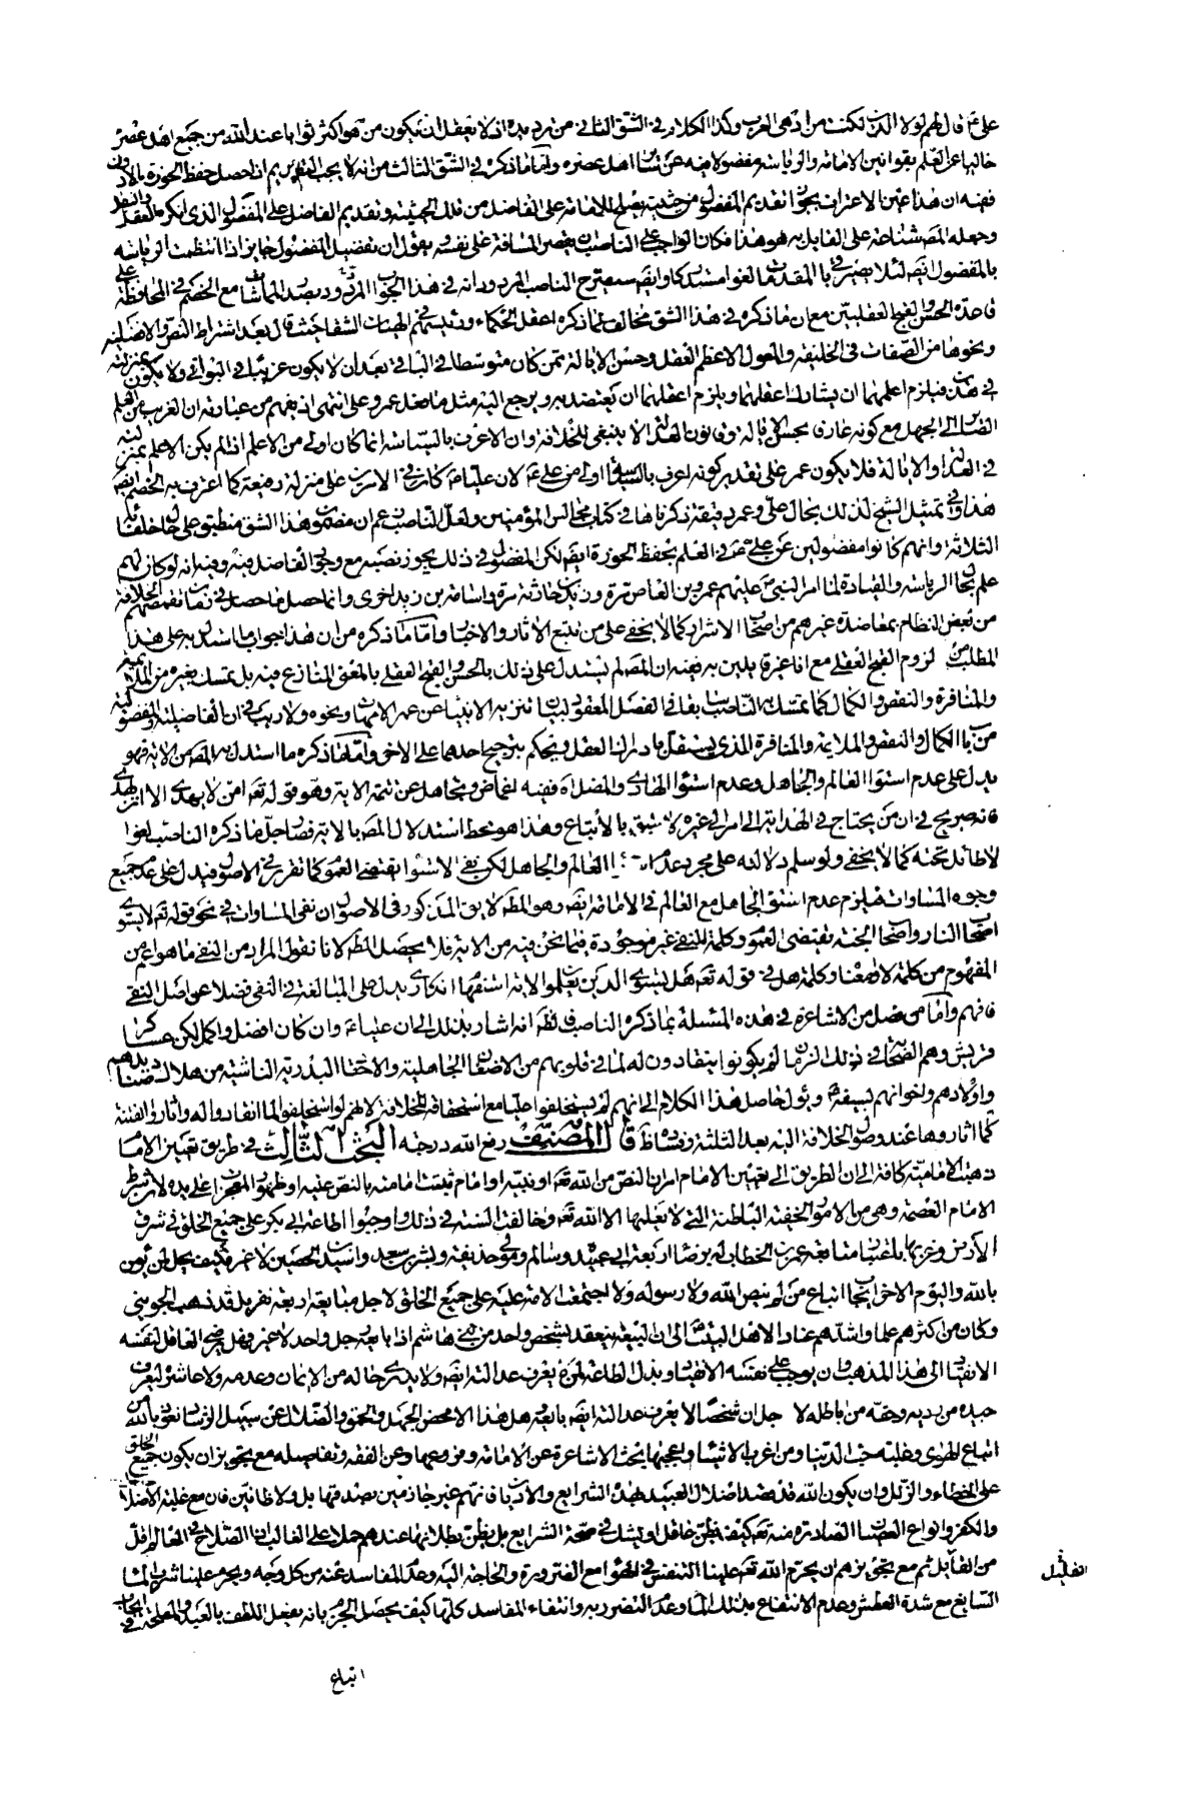 علىّ ع قال لهم لولا الدين لكنت من ادهى العرب وكذا الكلام فى الشق الثانى من ترديده انه لا يعقل ان يكون من هو اكثر ثوابا عند الله من جميع اهل عصره
خاليا عن العلم بقوانين الامامة والرياسة مفضولا فيه عن ساير اهل عصره واما ما ذكره فى الشق الثالث من انه لا يجب التقديم اذا حصل حفظ الحوزة بالادون
ففيه ان هذا عين الاعتراف بجواز تقديم المفضول من حيث يصلح للامامة على الفاضل من تلك الحيثية وتقديم الفاضل على المفضول الذى انكره العقل والنقل
وجعله المص شناعة على القايل به هو هذا فكان الواجب على الناصب ان يقصر المسافة على نفسه ويقول ان تفضيل المفضول جايز اذا انتظمت الرياسة
بالمفضول ايضا لئلا يصير باقى المقدمات لغوا مستدركا وايضا سيصرح الناصب المردود انه فى هذا الجواب المردود بصدد المماشات مع الخصم فى المحافظة على
قاعدة الحسن والقبح العقليين مع ان ما ذكره فى هذا الشق مخالف لما ذكره اعقل الحكماء ورئيسهم فى الهيات الشفا حيث قال بعد اشتراط النص والافضلية
ونحوها من الصفات فى الخليفة والمعول الاعظم العقل وحسن الايالة فمن كان متوسطا فى الباقى بعد ان لا يكون غريبا فى البواقى ولا يكون بمنزلته
فى هذين فيلزم اعلمهما ان يشارك اعقلهما ويلزم اعقلهما ان يعتضد به ويرجع اليه مثل ما فعل عمر وعلى انتهى اذ يفهم من عبارته ان الغريب عن العلم
الصاير الى الجهل مع كونه عارفا بحسن الايالة وقانون العدالة لا ينبغى للخلافة وان الاعرف بالسياسة انما كان اولى من الاعلم اذا لم يكن الاعلم بمنزلته
فى العدالة والايالة فلا يكون عمر على تقدير كونه اعرف بالسياسة اولى من على ع لان عليا ع كان فى الامرين على منزلة رفيعة كما اعترف به الخصم ايضا
هذا وفى تمثيل الشيخ لذلك بحال على وعمر دقيقة ذكرناها فى كتاب مجالس المؤمنين ولعل الناصب زعم ان مضمون هذا الشق منطبق على حال خلفائه
الثلاثة وانهم كانوا مفضولين عن على ع فى العلم بحفظ الحوزة ايضا لكن المفضول فى ذلك يجوز نصبه مع وجود الفاضل فيه وفيه انه لو كان لهم
علم بحال الرياسة والقيادة لما امر النبى ص عليهم عمرو بن العاص مرة وزيد بن حارثة مرة واسامة بن زيد اخرى وانما حصل ما حصل فى زمان تقمصهم الخلافة
من بعض النظام بمعاضدة غيرهم من اصحاب الاشرار كما لا يخفى على من تتبع الاثار والاخبار واما ما ذكره من ان هذا جواب ما استدل به على هذا
المطلب من لزوم القبح العقلى مع انا غير قايلين به ففيه ان المص لم يستدل على ذلك بالحسن والقبح العقلى بالمعنى المتنازع فيه بل تمسك بغيره من الملايمة
والمنافرة والنقص والكمال كما تمسك الناصب سابقا فى الفصل المعقود لبيان تنزيه الانبياء عن عهر الامهات ونحوه ولا ريب فى ان الفاضلية والمفضولية
من باب الكمال والنقص والملايمة والمنافرة الذى يستقل بادراك العقل ويحكم بترجيح احدهما على الاخر واما ما ذكره ما استدل به المص من الاية فهو
يدل على عدم استواء العالم والجاهل وعدم استواء الهادى والمضل اه ففيه اغماض وتجاهل عن تتمة الاية وهو قوله تع امن لا يهدى الا ان يهدى
فانه صريح فى ان من يحتاج فى الهداية الى امر الى غيره لا يليق بالاتباع وهذا هو محط استدلال المص بالاية فصار جل ما ذكره الناصب لغوا
لا طائل تحته كما لا يخفى ولو سلم دلالته على مجرد عدم استواء العالم والجاهل لكن نفى الاستواء يقتضى العموم كما تقرر فى الاصول فيدل على عدم جميع
وجوه المساوات فيلزم عدم استواء الجاهل مع العالم فى الامامة ايضا وهو المط لا يق المذكور فى الاصول ان نفى المساوات فى نحو قوله تع لا يستوى
اصحاب النار واصحاب الجنة يقتضى العموم وكلمة النفى غير موجودة فيما نحن فيه من الاية فلا يحصل المط لانا نقول المراد من النفى ما هو اعم من
المفهوم من كلمة لا ومعناه وكلمة هل فى قوله تع هل يستوى الذين يعلمون الاية استفهام انكارى يدل على المبالغة فى النفى فضلا عن اصل النفى
فافهم واما من فضل من الاشاعرة فى هذه المسئلة بما ذكره الناصب فلعله اشار بذلك الى ان عليا ع وان كان افضل واكمل لكن عساكر
قريش وهم الصحابة فى ذلك الزمان لم يكونوا ينقادون له لما فى قلوبهم من الاضغان الجاهلية والاحقاد البدرية الناشئة من هلاك صناديدهم
واولادهم واخوانهم بسيفه ويؤل حاصل هذا الكلام الى انهم لم يستخلفوا عليا مع استحقاقه للخلافة لانهم لو استخلفوا لما انقادوا له واثاروا الفتنة
كما اثاروها عند وصول الخلافة اليه بعد الثلثة قال المصنف رفع الله درجته البحث الثالث فى طريق تعيين الامام
ذهبت الامامية كافة الى ان الطريق الى تعيين الامام امران النص من الله تع او نبيه او امام ثبتت امامته بالنص عليه او ظهور المعجزات على يده لان شرط
الامام العصمة وهى من الامور الخفية الباطنة التى لا يعلمها الا الله تع وخالفت السنة فى ذلك واوجبوا اطاعة ابى بكر على جميع الخلق فى شرق
الارض وغربها باعتبار مبايعة عمر بن الخطاب له برضا اربعة ابى عبيدة وسالم مولى حذيفة وبشر بن سعد واسيد بن الحصين لا غير فكيف يحل لمن يؤمن
بالله واليوم الاخر ايجاب اتباع من لم ينص الله ولا رسوله ولا اجتمعت الامة عليه على جميع الخلق لاجل مبايعة اربعة نفر بل قد ذهب الجوينى
وكان من اكثرهم علما واشدهم عنادا لاهل البيت ع الى ان البيعة ينعقد لشخص واحد من بنى هاشم اذا بايعه رجل واحد لا غير فهل يرضى العاقل لنفسه
الانقياد الى هذا المذهب وان يوجب على نفسه الانقياد وبذل الطاعة لمن لا يعرف عدالته ايضا ولا يدرى حاله من الايمان وعدمه ولا عاشره ليعرف
جيده من رديه وحقه من باطله لاجل ان شخصا لا يعرف عدالته ايضا بايعه وهل هذا الا محض الجهل والحمق والضلال عن سبيل الرشاد نعوذ بالله من
اتباع الهوى وغلبة حب الدنيا ومن اغرب الاشياء واعجبها بحث الاشاعرة عن الامامة وفروعها وعن الفقه وتفاصيله مع تجويز ان يكون جميع الخلق
على الخطاء والزلل وان يكون الله قد قصد اضلال العبيد بهذه الشرايع والاديان فانهم غير جازمين بصدقها بل ولا ظانين فان مع غلبة الاضلال
والكفر وانواع العصيان الصادرة منه تع كيف يظن عاقل او يشك فى صحة الشرايع بل يظن بطلانها عندهم حملا على الغالب اذ الصلاح فى العالم اقل
من القليل ثم مع تجويزهم ان يحرم الله تع علينا التنفس فى الهواء مع الضرورة والحاجة اليه وعدم المفاسد عنه من كل وجه ويحرم علينا شرب الماء
السايغ مع شدة العطش وعدم الانتفاع بذلك الماء وعدم التضرر به وانتفاء المفاسد كلها كيف يحصل الجزم بانه يفعل اللطف بالعبد والمصلحة فى ايجاب
القليل
اتباع